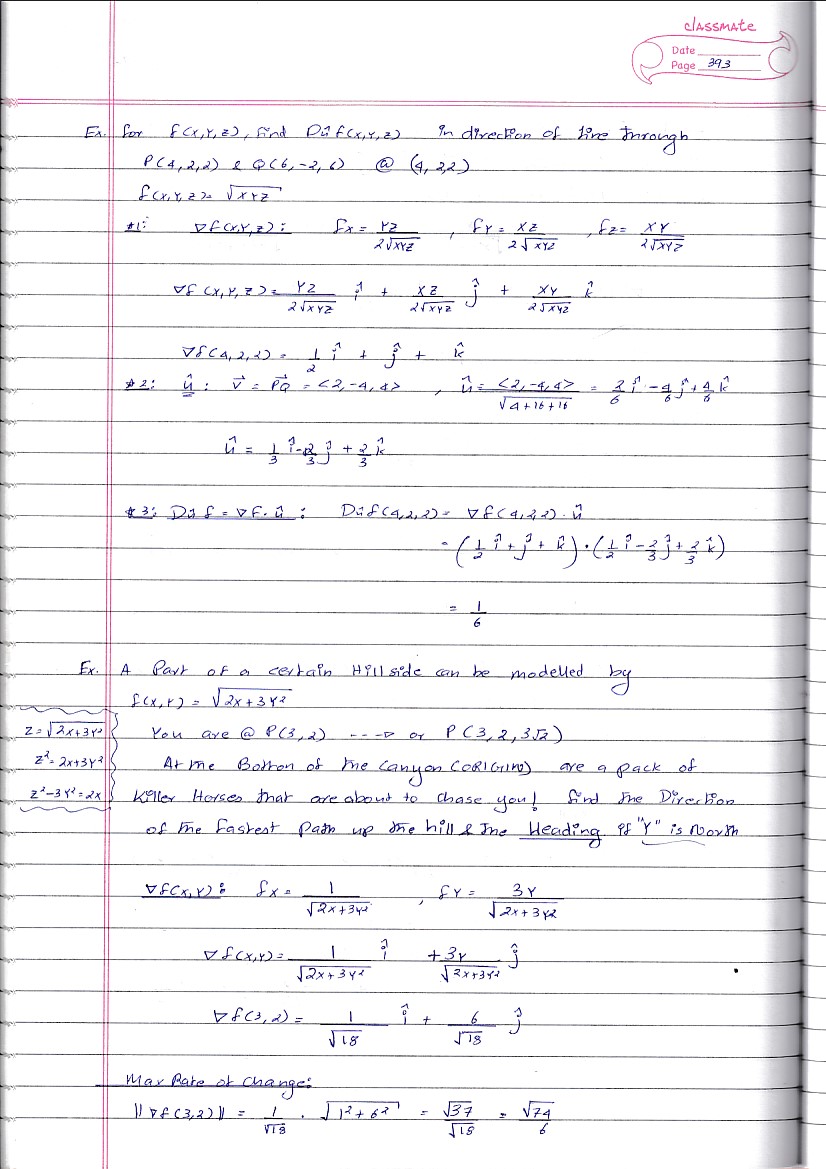 classmate
Date
Page 393
Ex. for f(x,y,z), find Dû f(x,y,z) in direction of line through
P(4,2,2) & Q(6,-2,6) @ (4,2,2)
f(x,y,z) = √xyz
#1: ∇f(x,y,z): fx = yz/2√xyz , fy = xz/2√xyz , fz = xy/2√xyz
∇f(x,y,z) = yz/2√xyz î + xz/2√xyz ĵ + xy/2√xyz k̂
∇f(4,2,2) = 1/2 î + ĵ + k̂
#2: û : v⃗ = PQ⃗ = <2,-4,4> , û = <2,-4,4>/√4+16+16 = 2/6 î - 4/6 ĵ + 4/6 k̂
û = 1/3 î - 2/3 ĵ + 2/3 k̂
#3: Dû f = ∇f · û : Dûf(4,2,2) = ∇f(4,2,2) · û
= (1/2 î + ĵ + k̂) · (1/2 î - 2/3 ĵ + 2/3 k̂)
= 1/6
Ex. A Part of a certain Hillside can be modelled by
f(x,y) = √2x+3y²
z = √2x+3y²
You are @ P(3,2) ---▷ or P(3,2,3√2)
z² = 2x+3y²
At the Bottom of the Canyon (ORIGIN) are a pack of
z²-3y² = 2x
Killer Horses that are about to chase you! find the Direction
of the fastest Path up the hill & the Heading if "Y" is North
∇f(x,y): fx = 1/√2x+3y² , fy = 3y/√2x+3y²
∇f(x,y) = 1/√2x+3y² î + 3y/√2x+3y² ĵ
∇f(3,2) = 1/√18 î + 6/√18 ĵ
Max Rate of Change:
||∇f(3,2)|| = 1/√18 · √1²+6² = √37/√18 = √74/6